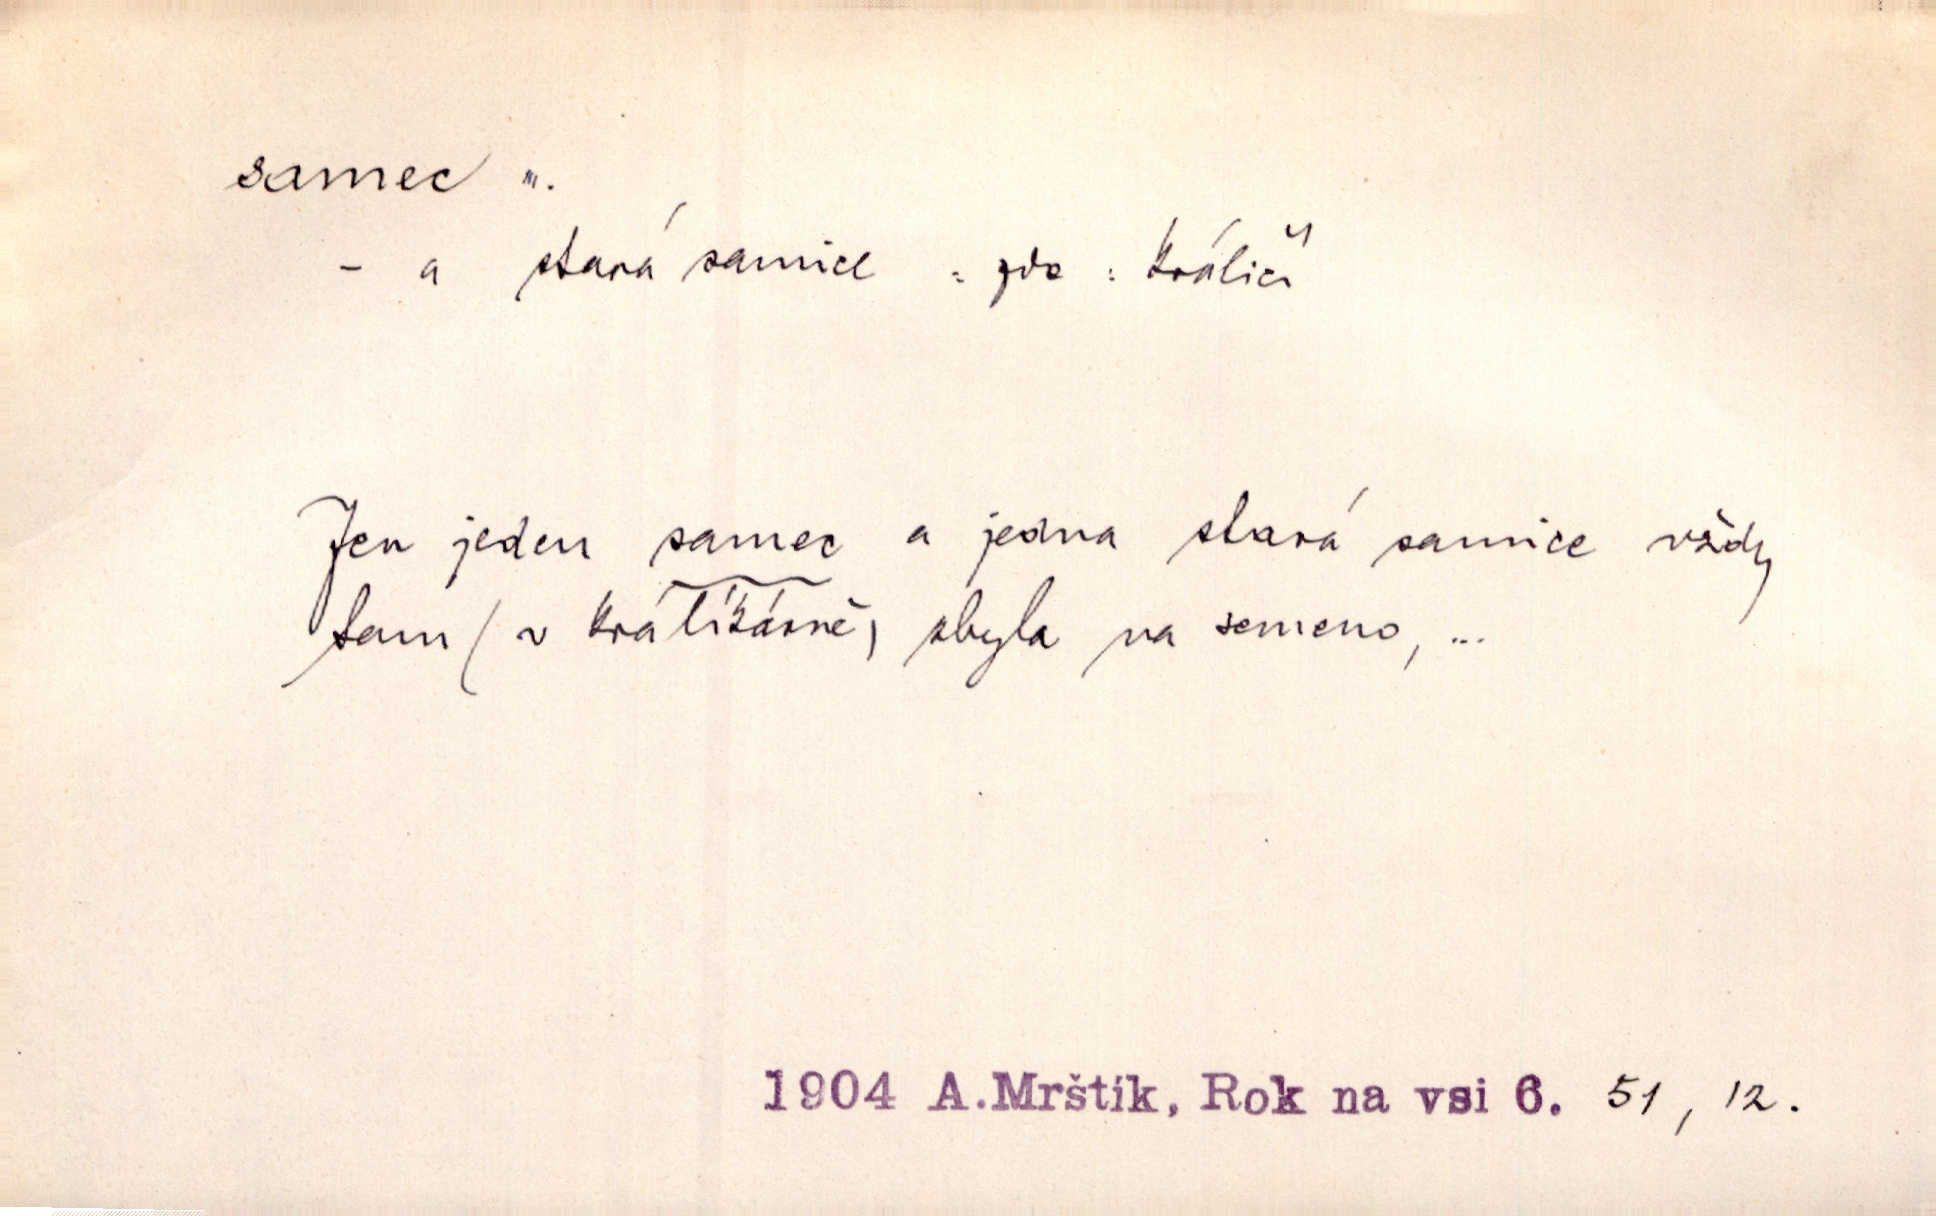 samec m.
- a stará samice : zde : králičí
Jen jeden samec a jedna stará samice vždy
tam (v králíkárně) zbyla na semeno, ...
1904 A.Mrštík, Rok na vsi 6. 51, 12.